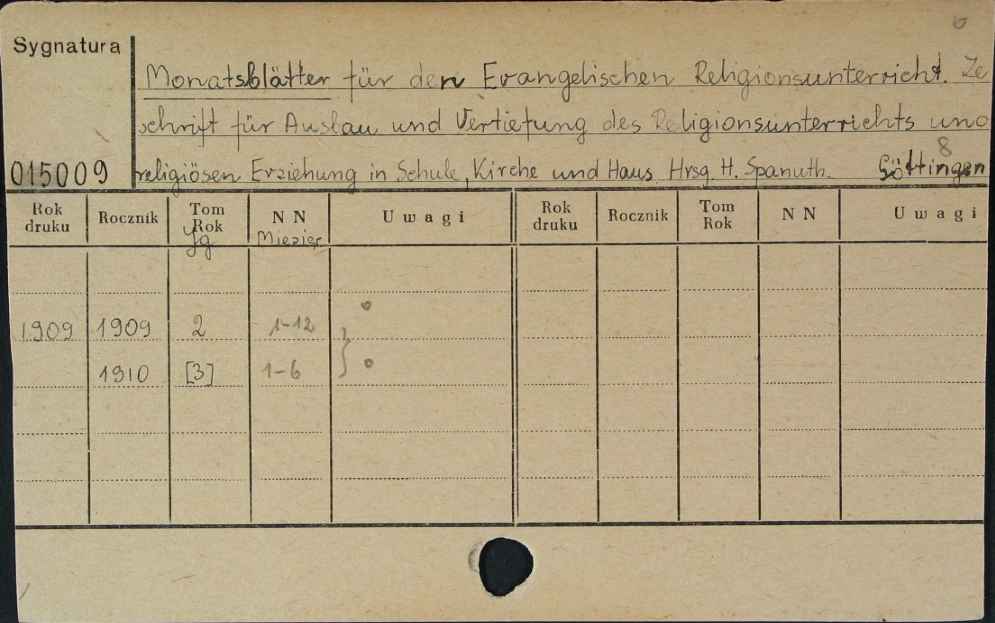 6
Sygnatura
Monatsblätter für den Evangelischen Religionsunterricht. Ze
schrift für Ausbau und Vertiefung des Religionsunterrichts und
8
015009 religiösen Erziehung in Schule, Kirche und Haus Hrsg. H. Spanuth. Göttingen
Rok druku Rocznik Tom Rok N N U w a g i Rok druku Rocznik Tom Rok N N U w a g i
Jg Miesiąc
1909 1909 2 1-12
1910 [3] 1-6